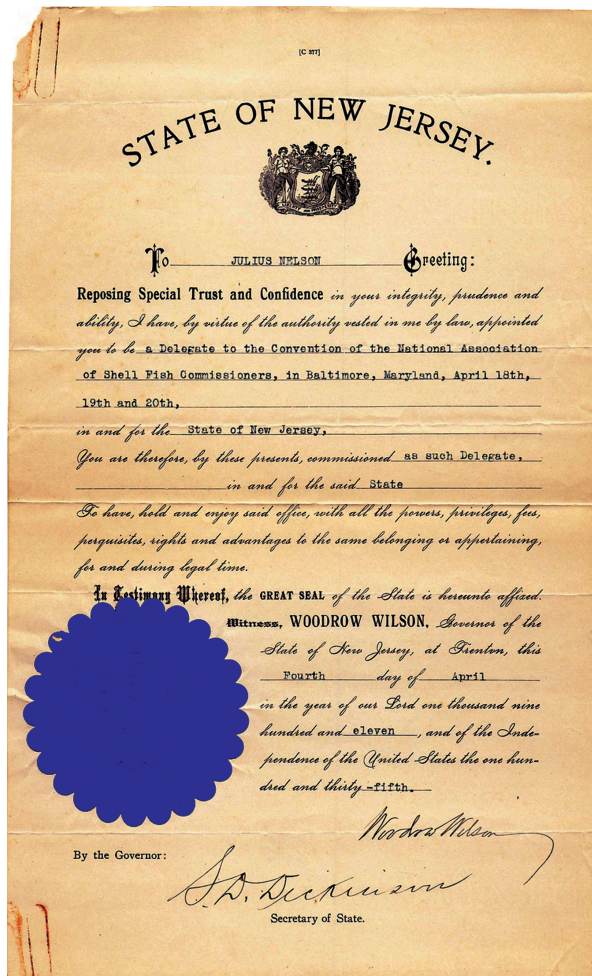 [C 317]
STATE OF NEW JERSEY.
To JULIUS NELSON Greeting:
Reposing Special Trust and Confidence in your integrity, prudence and
ability, I have, by virtue of the authority vested in me by law, appointed
you to be a Delegate to the Convention of the National Association
of Shell Fish Commissioners, in Baltimore, Maryland, April 18th,
19th and 20th,
in and for the State of New Jersey,
You are therefore, by these presents, commissioned as such Delegate,
in and for the said State
To have, hold and enjoy said office, with all the powers, privileges, fees,
perquisites, rights and advantages to the same belonging or appertaining,
for and during legal time.
In Testimony Whereof, the GREAT SEAL of the State is hereunto affixed.
Witness, WOODROW WILSON, Governor of the
State of New Jersey, at Trenton, this
Fourth day of April
in the year of our Lord one thousand nine
hundred and eleven, and of the Inde-
pendence of the United States the one hun-
dred and thirty-fifth.
Woodrow Wilson
By the Governor:
S. D. Dickinson
Secretary of State.